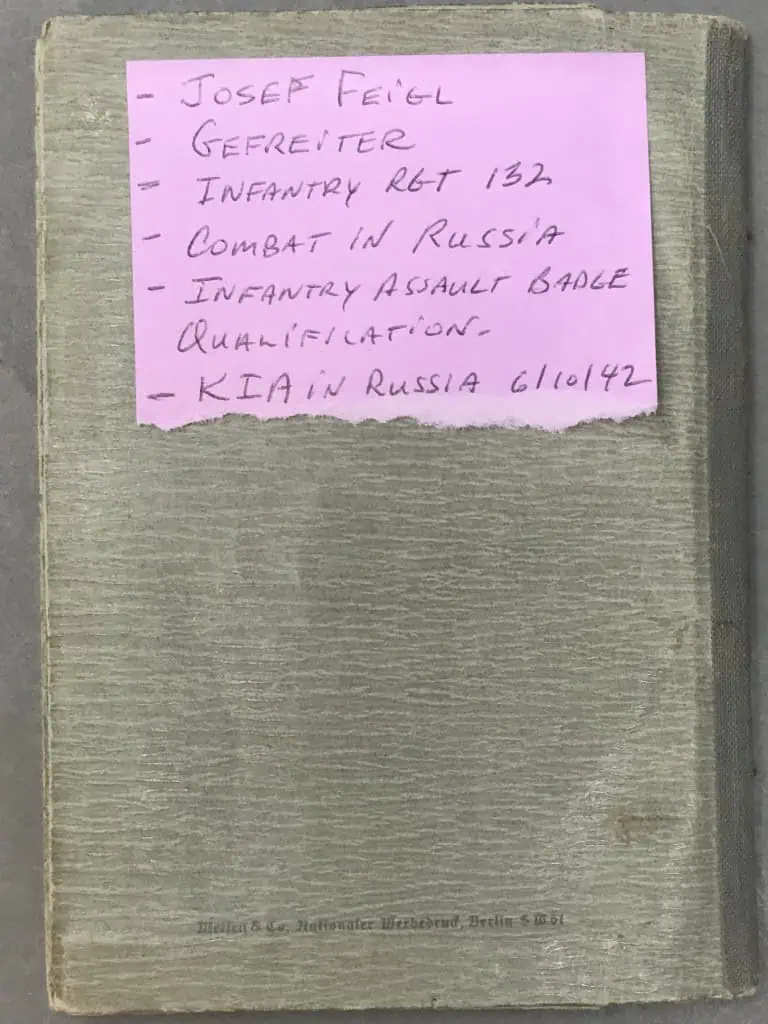 - JOSEF FEIGL
- GEFREITER
- INFANTRY RGT 132
- COMBAT IN RUSSIA
- INFANTRY ASSAULT BADGE
QUALIFICATION-
- KIA IN RUSSIA 6/10/42
& Co, Nationaler Werbedruck, Berlin SW 61